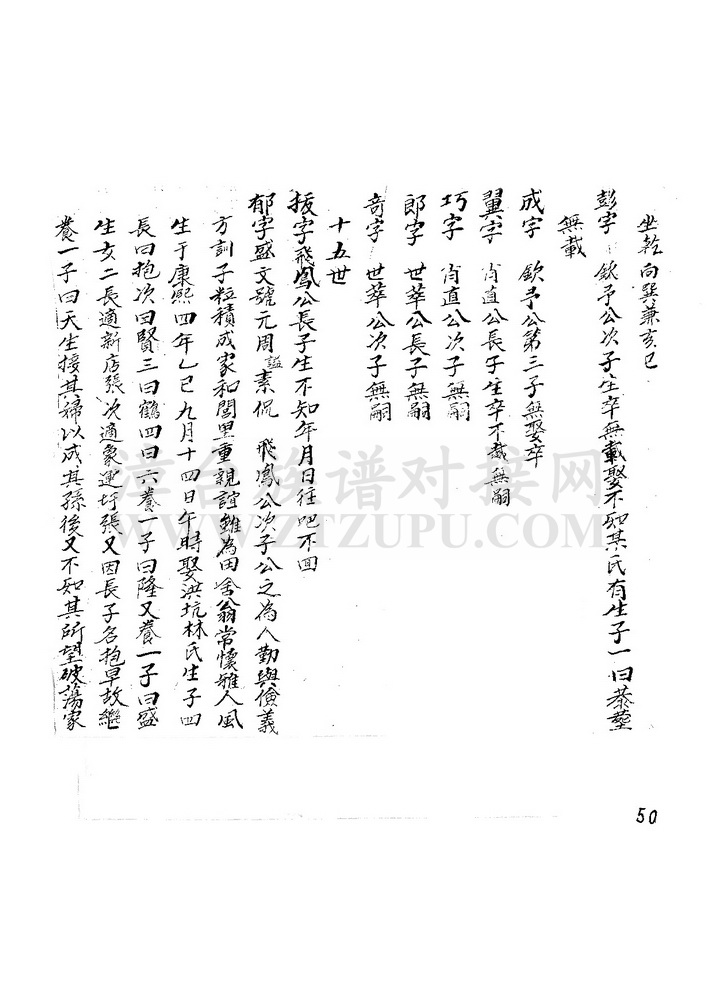 坐乾向巽兼亥巳
彭字 欽予公次子生卒無載娶不知某氏有生子一曰
無載
成字 欽予公第三子無娶卒
翼字 肖直公長子生卒不載無嗣
巧字 肖直公次子無嗣
郎字 世萃公長子無嗣
奇字 世萃公次子無嗣
十五世
拔字飛鳳公長子生不知年月日往吧不回
郁字盛文號元周謚素侃 飛鳳公次子公之為人勤與儉義
方訓子粒積成家和閭里重親誼雖為田舍翁常懷雅人風
生于康熙四年乙巳九月十四日午時娶洪坑林氏生子四
長曰抱次曰賢三曰鶴四曰六養一子曰隆又養一子曰盛
生女二長適新店張次適象運圩張又因長子名抱早故繼
養一子曰天生接其婦以成其孫後又不知其所望破蕩家
漳台族谱对接网
WWW.ZTZUPU.COM
50